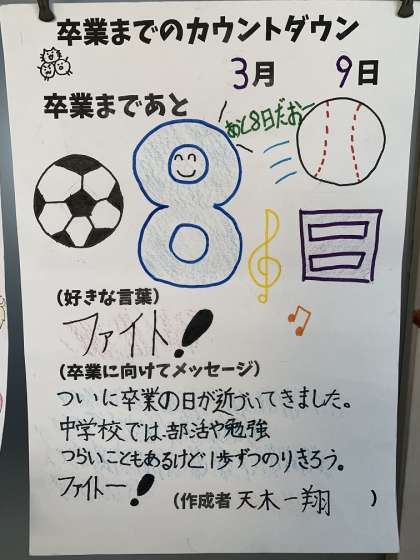 卒業までのカウントダウン
3月 9日
卒業まであと
あと8日だお
8日
(好きな言葉)
ファイト!
(卒業に向けてメッセージ)
ついに卒業の日が近づいてきました。
中学校では、部活や勉強
つらいこともあるけど1歩ずつのりきろう。
ファイトー!
(作成者 天木一翔 )